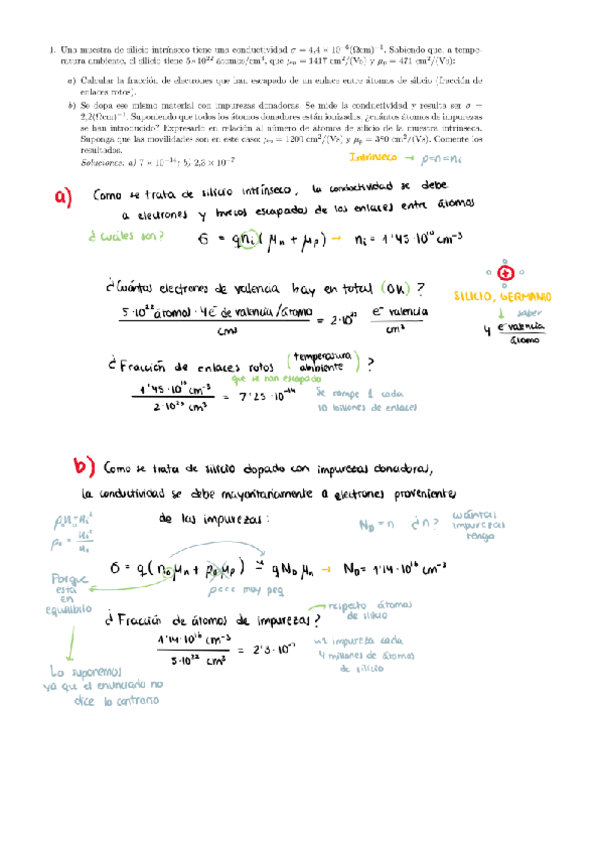 1. Una muestra de silicio intrínseco tiene una conductividad σ = 4,4 × 10⁻⁶(Ωcm)⁻¹. Sabiendo que, a tempe-
ratura ambiente, el silicio tiene 5×10²² átomos/cm³, que μₙ = 1417 cm²/(Vs) y μₚ = 471 cm²/(Vs):
a) Calcular la fracción de electrones que han escapado de un enlace entre átomos de silicio (fracción de
enlaces rotos).
b) Se dopa ese mismo material con impurezas donadoras. Se mide la conductividad y resulta ser σ =
2,2(Ωcm)⁻¹. Suponiendo que todos los átomos donadores están ionizados, ¿cuántos átomos de impurezas
se han introducido? Expresarlo en relación al número de átomos de silicio de la muestra intrínseca.
Suponga que las movilidades son en este caso: μₙ = 1200 cm²/(Vs) y μₚ = 380 cm²/(Vs). Comente los
resultados.
Soluciones: a) 7 × 10⁻¹⁴; b) 2,3 × 10⁻⁷
Intrínseco → p=n=nᵢ
a) Como se trata de silicio intrínseco, la conductividad se debe
a electrones y huecos escapados de los enlaces entre átomos
¿Cuáles son? σ = qnᵢ(μₙ + μₚ) → nᵢ = 1'45·10¹⁰ cm⁻³
¿Cuántos electrones de valencia hay en total (0K)?
5·10²² átomos · 4e⁻ de valencia/átomo
cm³
= 2·10²³ e⁻ valencia
cm³
SILICIO, GERMANIO
↓ saber
4 e⁻ valencia
átomo
¿Fracción de enlaces rotos (temperatura ambiente)?
que se han escapado
1'45·10¹⁰ cm⁻³
2·10²³ cm³
= 7'25·10⁻¹⁴
Se rompe 1 cada
10 billones de enlaces
b) Como se trata de silicio dopado con impurezas donadoras,
la conductividad se debe mayoritariamente a electrones provenientes
de las impurezas:
p₀n₀=nᵢ²
p₀ = nᵢ²
n₀
N_D = n ¿n? cuántas
impurezas
tengo
σ = q(n₀μₙ + p₀μₚ) ≈ qN_Dμₙ → N_D = 1'14·10¹⁶ cm⁻³
muy peq
Porque
está
en
equilibrio
¿Fracción de átomos de impurezas?
respecto átomos
de silicio
1'14·10¹⁶ cm⁻³
5·10²² cm³
= 2'3·10⁻⁷
impureza cada
4 millones de átomos
de silicio
Lo suponemos
ya que el enunciado no
dice lo contrario